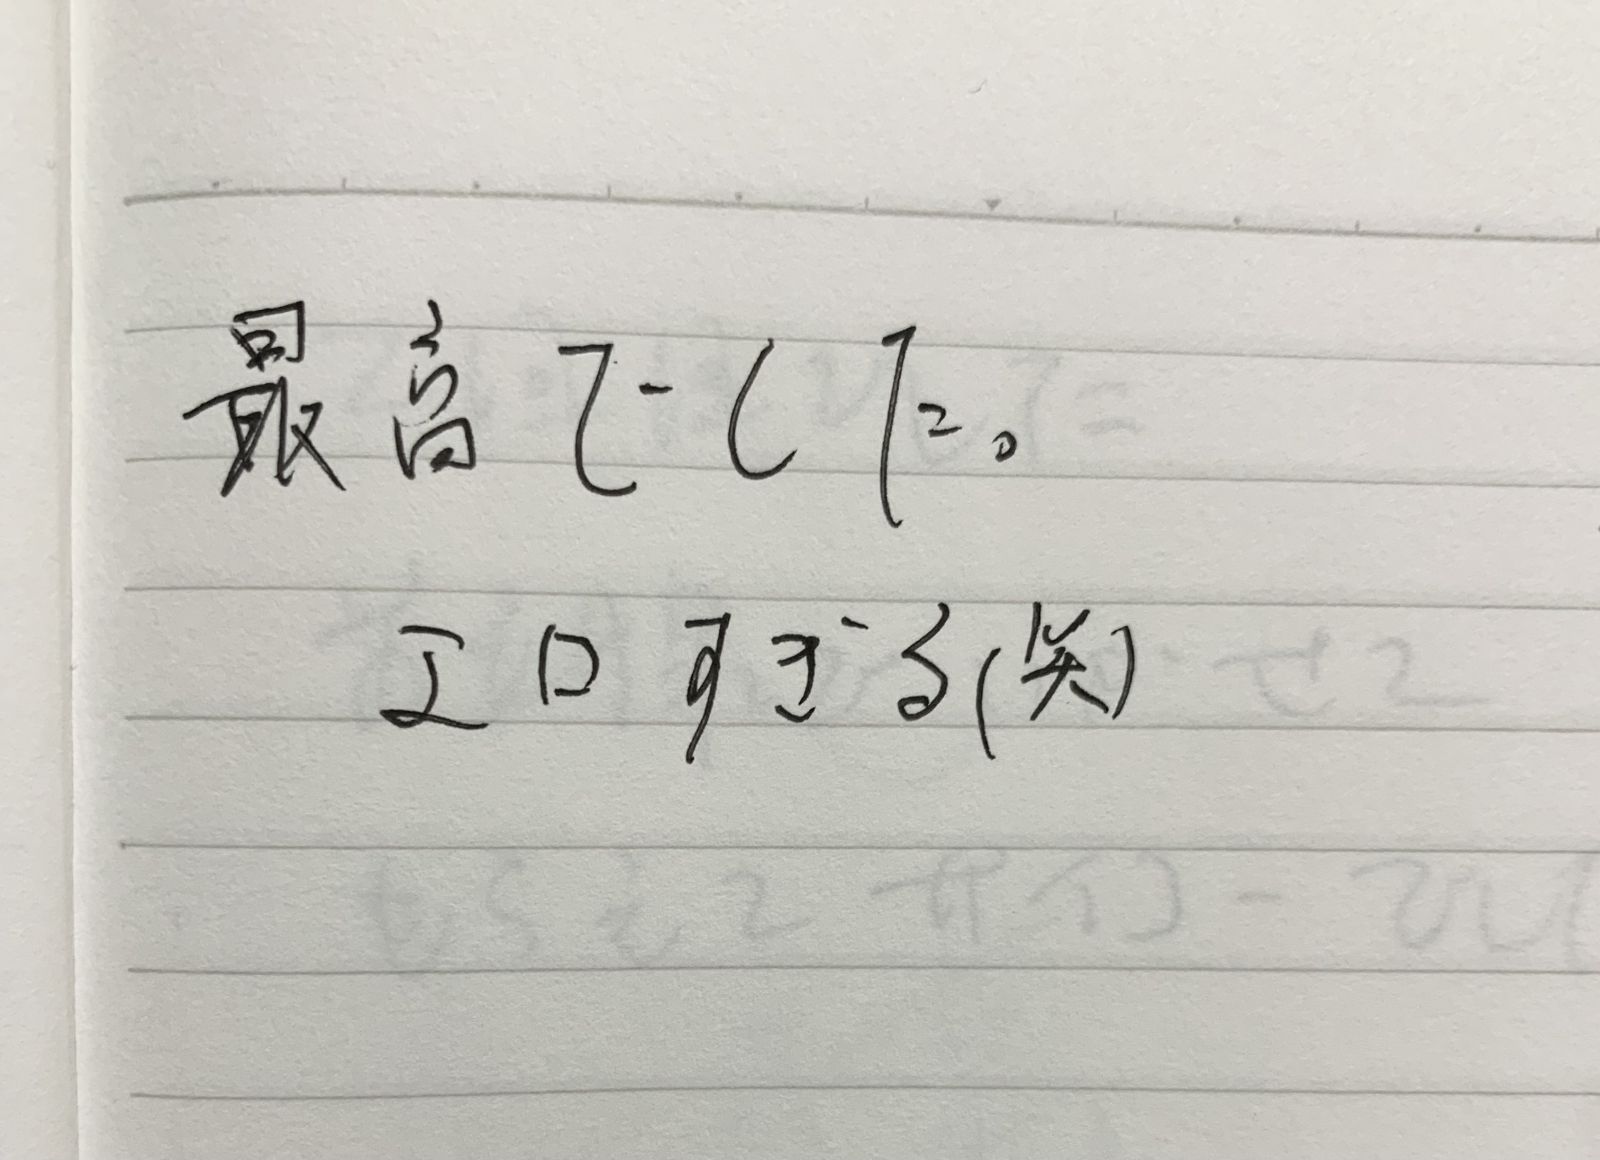 最高でした。
エロすぎる(笑)